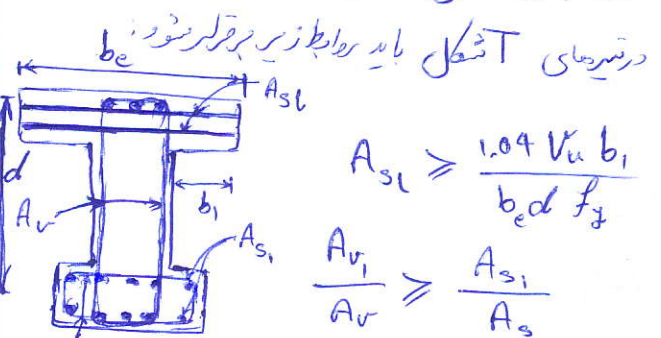 در تیرهای T شکل باید روابط زیر برقرار شود:
be
Asl
d
Asl ≥ 1.04 Vu b1 / be d fy
b1
Av
As1
Av1 / Av ≥ As1 / As